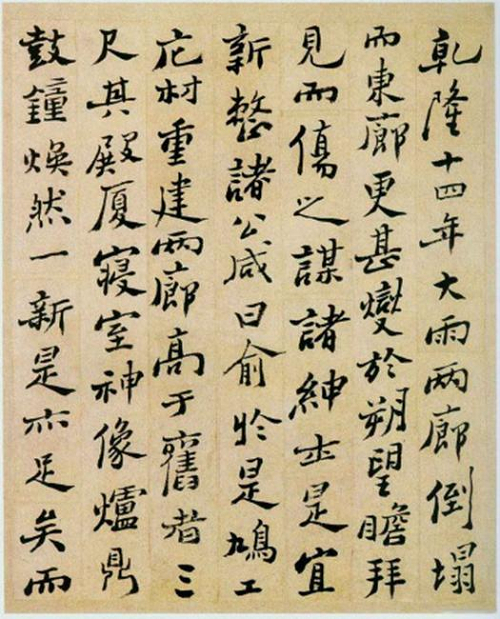 乾隆十四年大雨两廊倒塌
而東廊更甚燮於朔望瞻拜
見而傷之謀諸紳士是宜
新整諸公咸曰俞於是鳩工
庀材重建两廊高于舊者三
尺其殿厦寝室神像爐鼎
鼓鐘煥然一新是亦足矣而